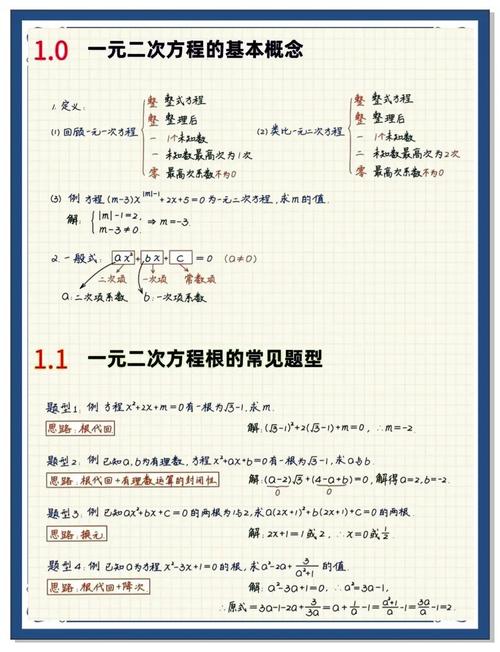 1.0 一元二次方程的基本概念
1. 定义:
(1) 回顾一元一次方程 { 整 整式方程
整 整理后
一 1个未知数
一 未知数最高次为1次
零 最高次系数不为0
(2) 类比一元二次方程 { 整 整式方程
整 整理后
一 1个未知数
二 未知数最高次为2次
零 最高次系数不为0
(3) 例 方程(m-3)x^{|m|-1}+2x+5=0为一元二次方程,求m的值.
解: { |m|-1=2,
m-3≠0. ⇒ m=-3.
2. 一般式: ax²+bx+c=0 (a≠0)
二次项 一次项 常数项
a:二次项系数 b:一次项系数
1.1 一元二次方程根的常见题型
题型1: 例 方程x²+2x+m=0有一根为√3-1,求m.
思路:根代回 解:(√3-1)²+2(√3-1)+m=0, ∴m=-2.
题型2: 例 已知a,b为有理数,方程x²+ax+b=0有一根为√5-1,求a与b.
思路:根代回+有理数运算的封闭性 解:(a-2)√5+(4-a+b)=0,解得a=2,b=-2.
0 0
题型3: 例 已知ax²+bx+c=0的两根为1与2,求a(2x+1)²+b(2x+1)+c=0的两根.
思路:换元 解:2x+1=1或2, ∴x=0或1/2.
题型4: 例 已知a为方程x²-3x+1=0的根,求a²-2a+3/(a²+1)的值.
思路:根代回+降次 解: a²-3a+1=0, ∴a²=3a-1,
∴原式=3a-1-2a+3/3a=a+1/a-1=(a²+1)/a-1=3a/a-1=2.